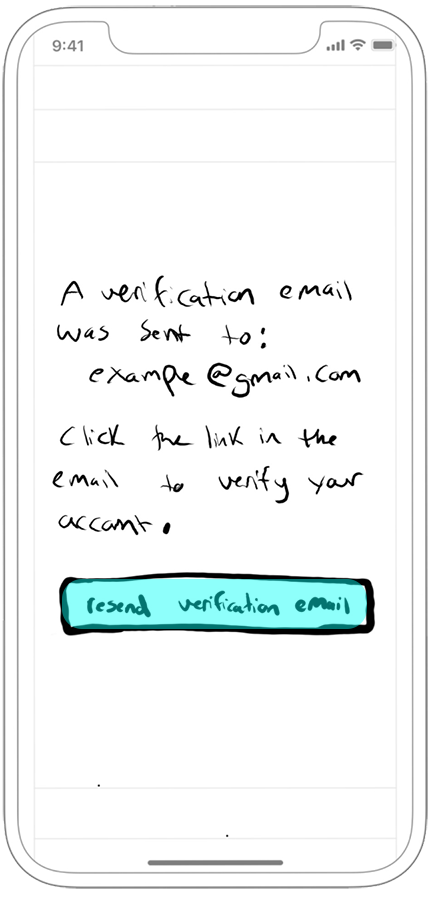 9:41
A verification email
was sent to:
exampe@gmail.com
Click the link in the
email to verify your
account.
resend verification email